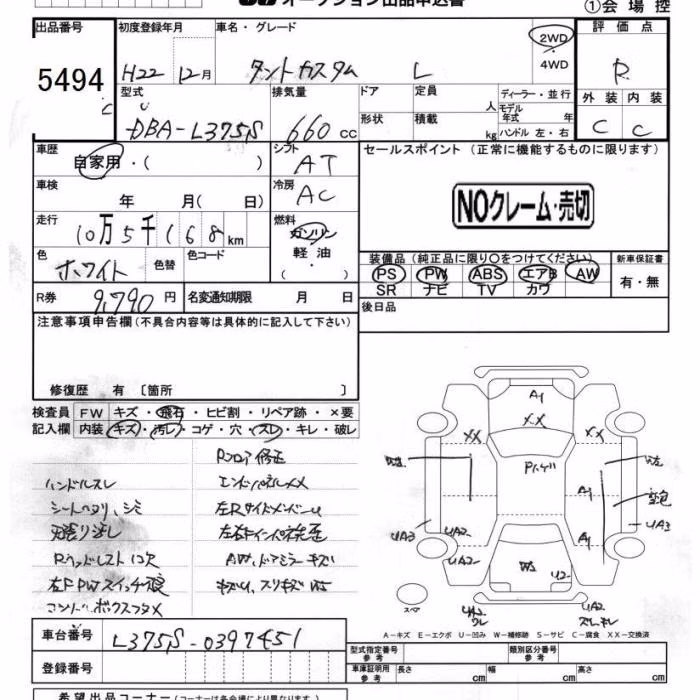 オークション出品申込書
①会場控
出品番号 初度登録年月 車名・グレード 評価点
5494 H22 12月 タントカスタム L 2WD・4WD R
型式 排気量 ドア 定員 人 ディーラー・並行 外装 内装
DBA-L375S 660cc 形状 積載 kg モデル年式 年 ハンドル 左・右 C C
車歴 自家用・( ) シフト AT セールスポイント (正常に機能するものに限ります)
車検 年 月( 日) 冷房 AC NOクレーム・売切
走行 10万5千168km 燃料 ガソリン 軽油
色 ホワイト 色替 色コード 装備品 (純正品に限り〇をつけてください) 新車保証書
PS PW ABS エアB AW 有・無
SR ナビ TV カワ
R券 9,790円 名変通知期限 月 日 後日品
注意事項申告欄(不具合内容等は具体的に記入して下さい)
修復歴 有 〔箇所 〕
検査員 FW キズ・飛石・ヒビ割・リペア跡・×要
記入欄 内装 キズ・汚レ・コゲ・穴・スレ・キレ・破レ
Rフロア修正
ハンドルスレ
シートヘタリ、シミ
AW、ドアミラーキズ
左FPWスイッチ
A1
XX
XX XX
A1
A1
UA2 UA3
UA3 UA2
スペア
UA2
A-キズ E-エクボ U-凹み W-補修跡 S-サビ C-腐食 XX-交換済
車台番号 L375S-0397451 型式指定番号 参考 類別区分番号 参考
登録番号 車庫証明用 参考 長さ cm 幅 cm 高さ cm
希望出品コーナー(コーナーは各会場により異なります。)